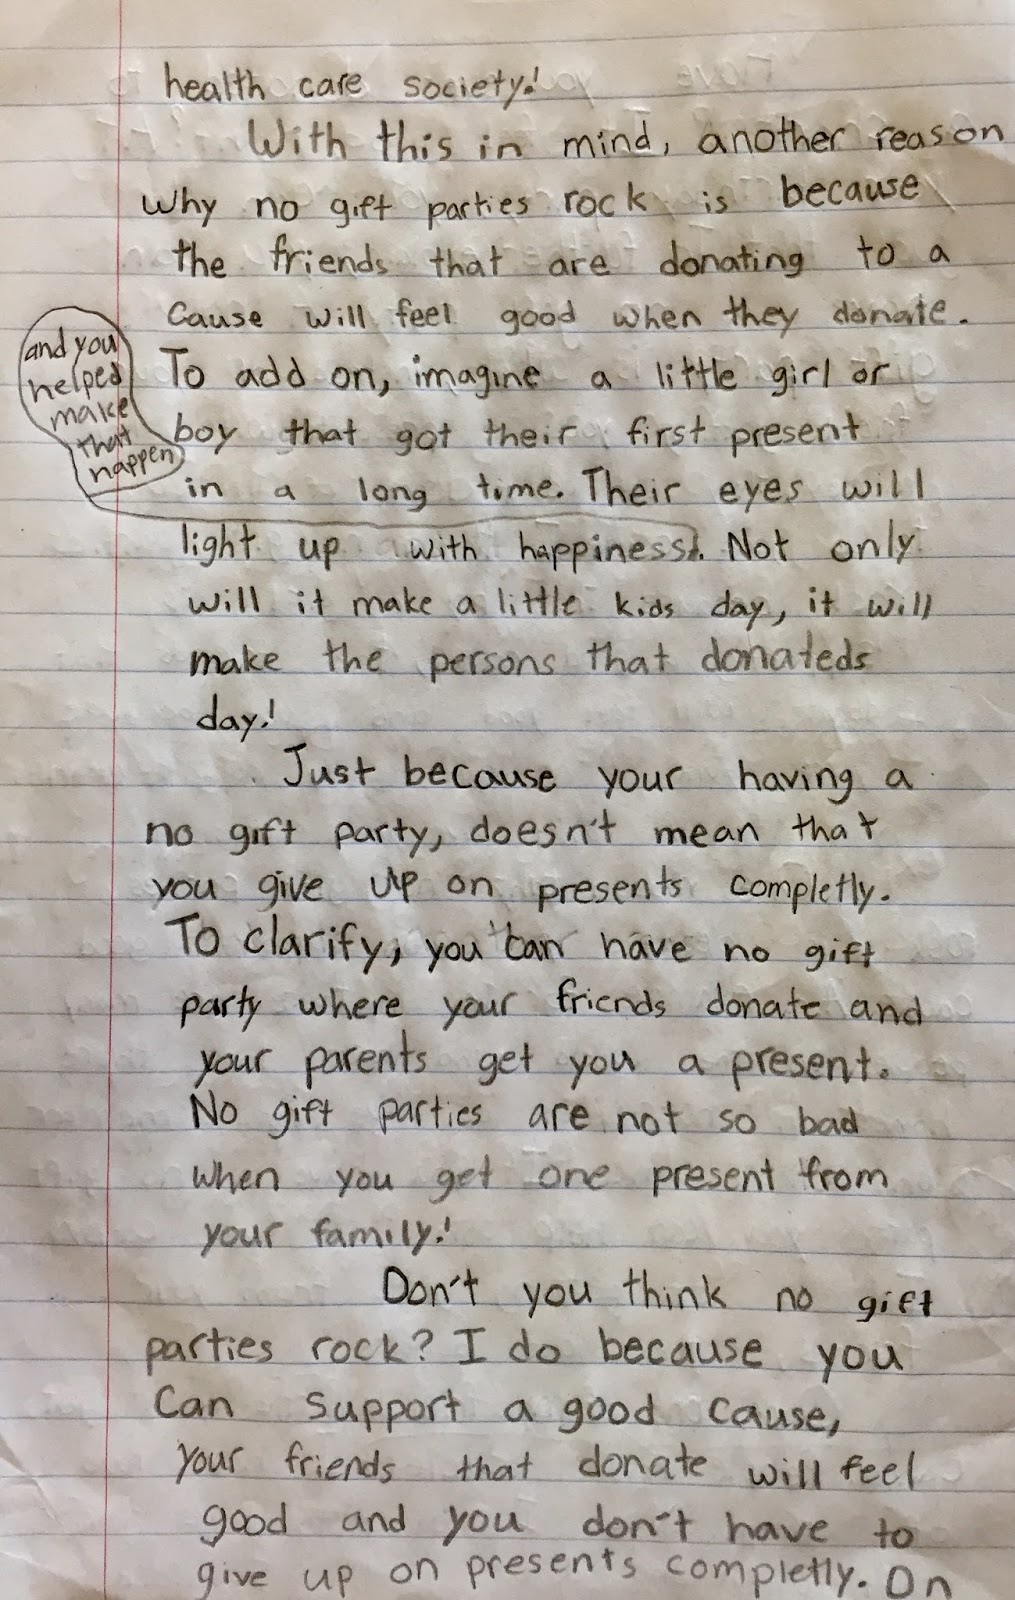 health care society!
With this in mind, another reason
why no gift parties rock is because
the friends that are donating to a
cause will feel good when they donate.
To add on, imagine a little girl or
boy that got their first present
in a long time. Their eyes will
light up with happiness. Not only
and you
helped
make
that
happen
will it make a little kids day, it will
make the persons that donateds
day!
Just because your having a
no gift party, doesn't mean that
you give up on presents completly.
To clarify, you can have no gift
party where your friends donate and
your parents get you a present.
No gift parties are not so bad
when you get one present from
your family!
Don't you think no gift
parties rock? I do because you
can support a good cause,
your friends that donate will feel
good and you don't have to
give up on presents completly. On